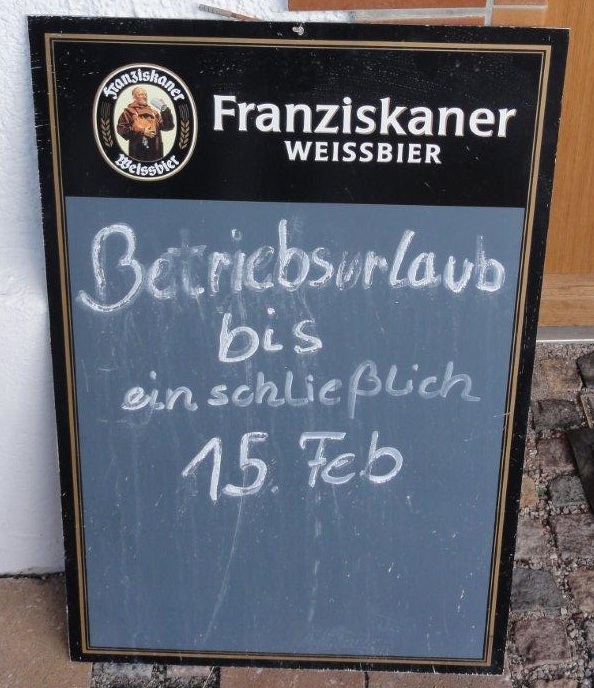 Franziskaner
Weissbier
Franziskaner
WEISSBIER
Betriebsurlaub
bis
einschließlich
15. Feb